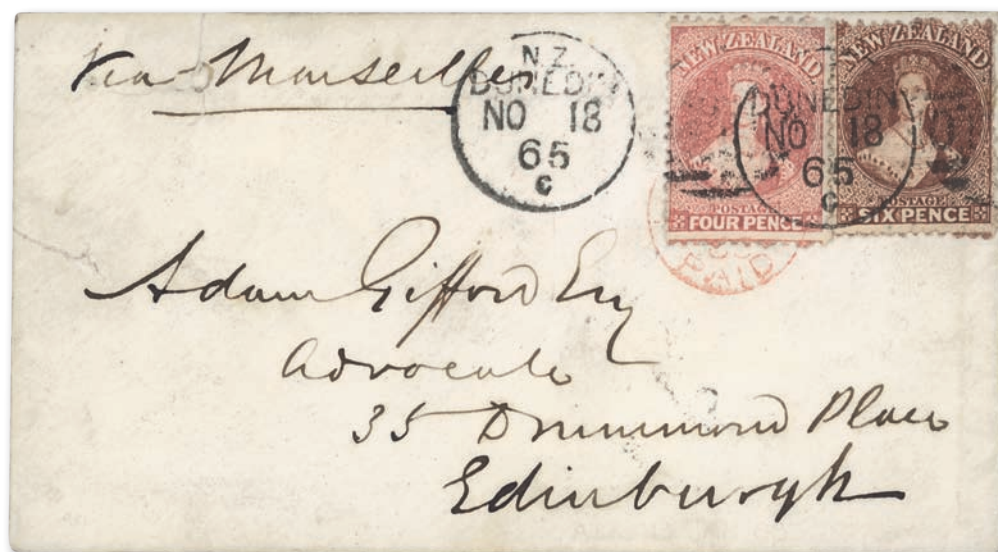 Via Marseilles
N.Z.
DUNEDIN
NO 18
65
C
NEW ZEALAND
POSTAGE
FOUR PENCE
NEW ZEALAND
POSTAGE
SIX PENCE
DUNEDIN
NO 18
65
C
PAID
Adam Gifford Esq
Advocate
35 Drummond Place
Edinburgh